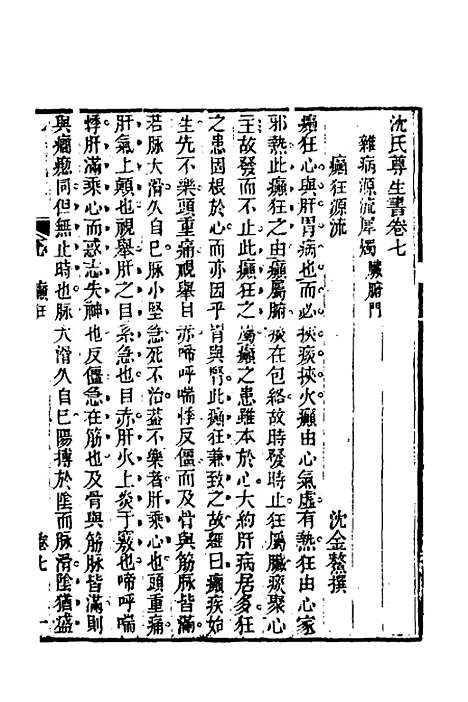 沈氏尊生書卷七
雜病源流犀燭 臟腑門
沈金鰲撰
癲狂源流
癲狂心與肝胃病也而必挾痰挾火癲由心氣虛有熱狂由心家
邪熱此癲狂之由癲屬腑痰在包絡故時發時止狂屬臟痰聚心
主故發而不止此癲狂之屬癲之患雖本於心大約肝病居多狂
之患固根於心而亦因乎胃與腎此癲狂兼致之故經曰癲疾始
生先不樂頭重痛視舉目赤啼呼喘悸反僵而及骨與筋脈皆滿
若脈大滑久自已脈小堅急死不治蓋不樂者肝乘心也頭重痛
肝氣上顛也視舉肝之目系急也目赤肝火上炎于竅也啼呼喘
悸肝滿乘心而惑志失神也反僵急在筋也及骨與筋脈皆滿則
與癇瘛同但無止時也脈大滑久自已陽搏於陰而脈滑陰猶盛
癲狂
卷七
一